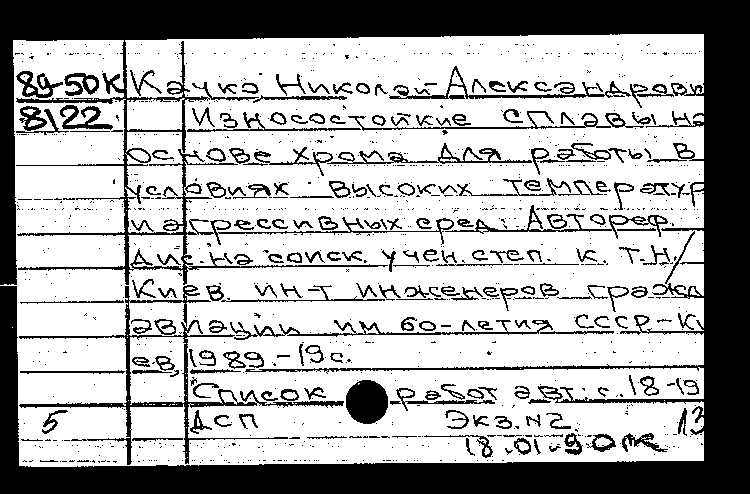 89-50К Качко, Николай Александрови
8122 Износостойкие сплавы на
основе хрома для работы в
условиях высоких температур
и агрессивных сред: Автореф.
дис. на соиск. учен. степ. к. т.н./
Киев. ин-т инженеров гражд
авиации им 60-летия СССР.-Ки
ев, 1989.-19с.
Список работ авт.: с. 18-19
5 ДСП Экз. N2 13
18.01.90